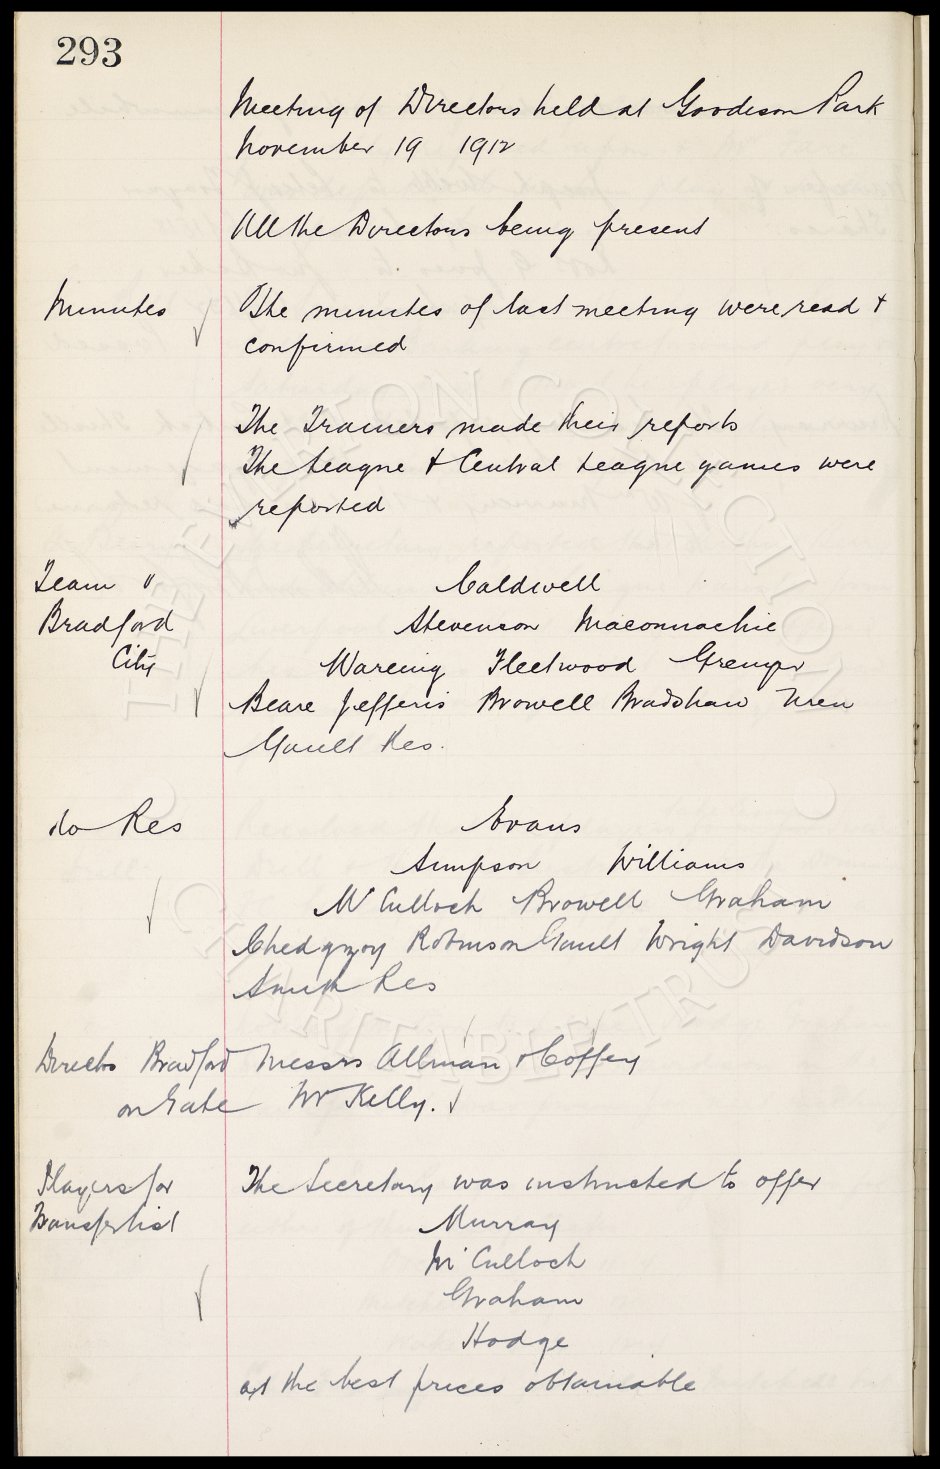 293
Meeting of Directors held at Goodison Park
November 19 1912
All the Directors being present
Minutes The minutes of last meeting were read +
confirmed
The Trainers made their reports
The League + Central League games were
reported
Team v Caldwell
Bradford Stevenson Maconnachie
City Wareing Fleetwood Grenyer
Beare Jefferis Browell Bradshaw Uren
Gault Res.
do Res Evans
Simpson Williams
McCulloch Browell Graham
Chedgzoy Robinson Gault Wright Davidson
Smith Res
Directs Bradford Messrs Allman + Coffey
on Gate Mr Kelly.
Players for The Secretary was instructed to offer
Transfer list Murray
McCulloch
Graham
Hodge
at the best prices obtainable
THE EVERTON COLLECTION
CHARITABLE TRUST